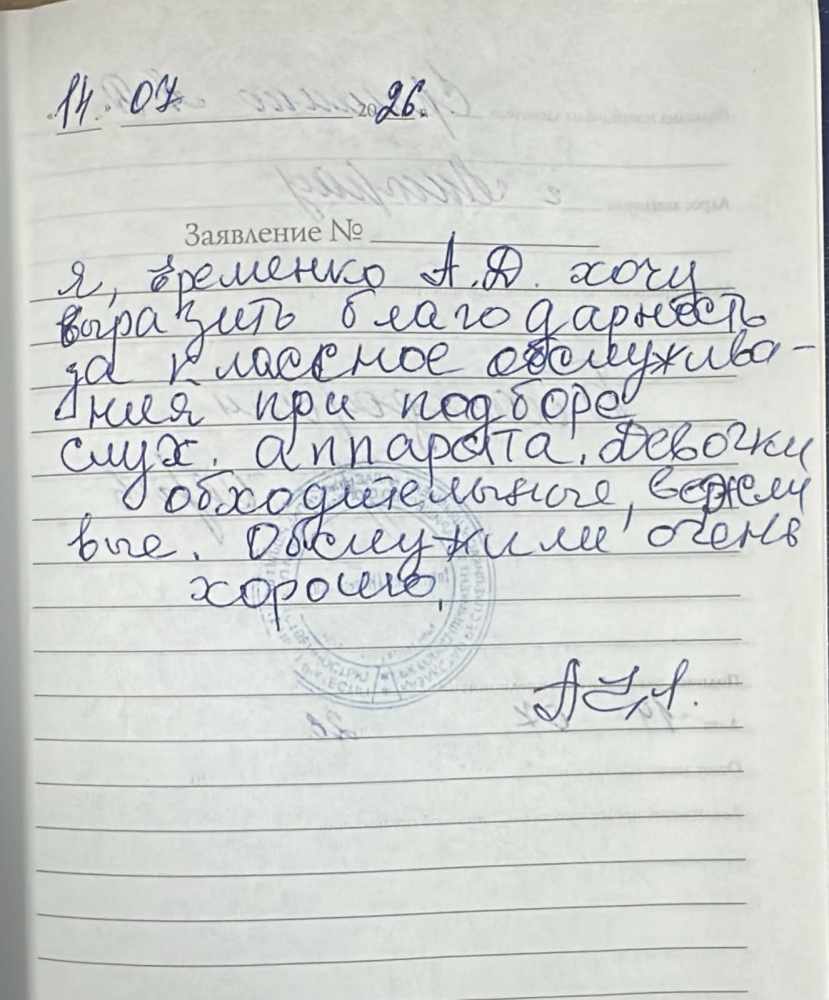 14. 07 2026.
Заявление №
я, Еременко А.Д. хочу
выразить благодарность
за классное обслужива-
ния при подборе
слух. аппарата. Девочки
обходительные, вежли
вые. Обслужили очень
хорошо,